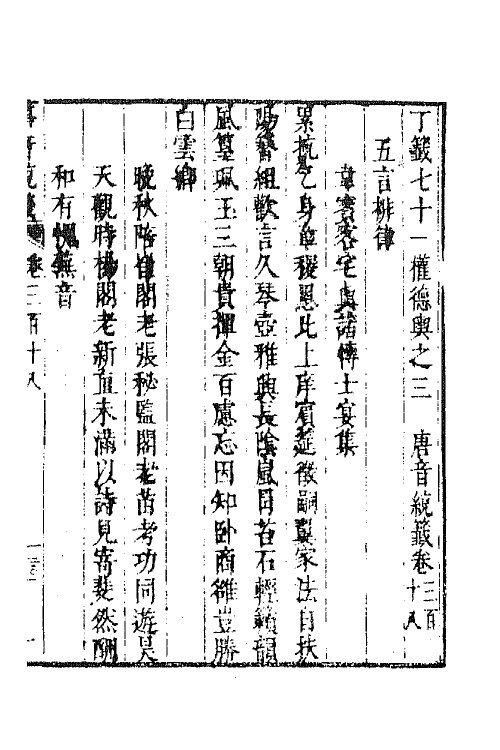 丁籤七十一權德輿之三　唐音統籤卷三百十八
五言排律
韋賓客宅與諸博士宴集
累抗乞身章稷恩比上庠賓筵徵嗣家法自扶
陽簪組歡言久琴壺雅興長陰嵐冒苔石輕籟韻
風篁珮玉三朝貴揮金百慮忘因知臥商雒豈勝
白雲鄉
晚秋陪崔閣老張秘監閣老苗考功同遊昊
天觀時楊閣老新直未滿以詩見寄斐然酬
和有愧蕪音
唐音統籤　卷三百十八